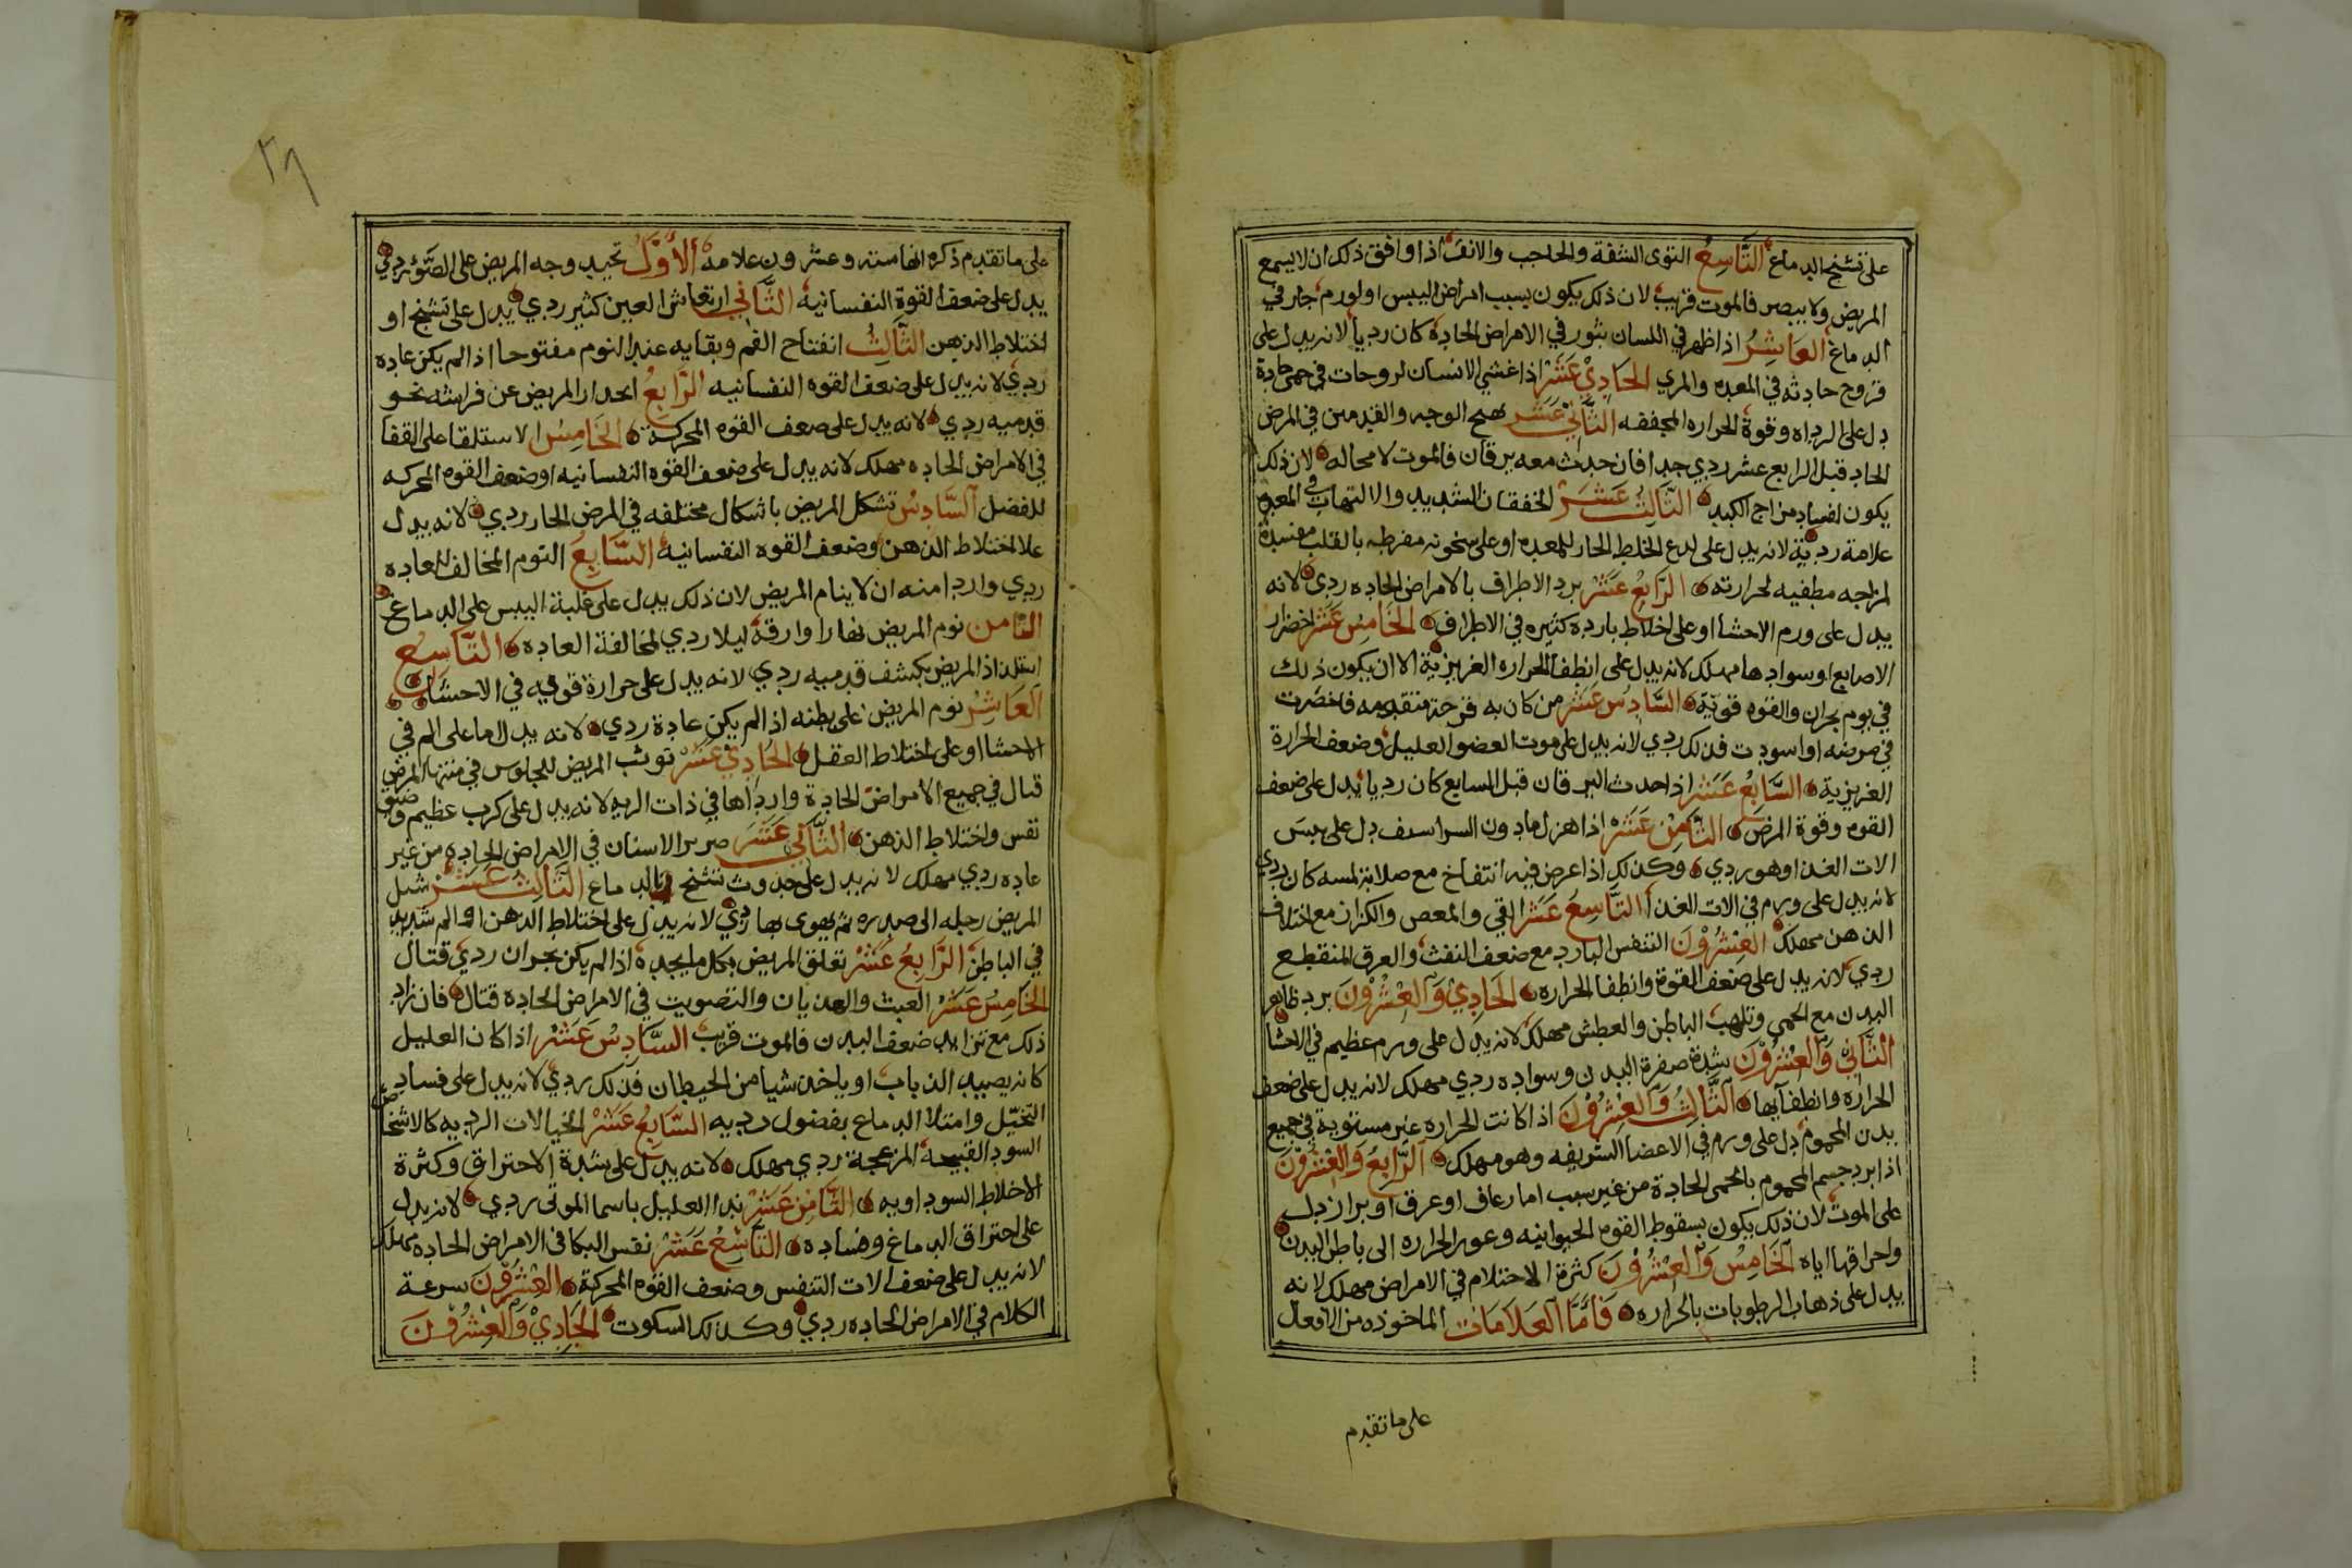 على تشنج الدماغ التاسع التوى الشفة والحاجب والانف اذا وافق ذلك ان لا يسمع
المريض ولا يبصر فالموت قريب لان ذلك يكون بسبب امراض اليبس او لورم حار في
الدماغ العاشر اذا ظهر في اللسان بثور في الامراض الحادة كان رديا لانه يدل على
قروح حادثه في المعده والمري الحادي عشر اذا غشي الانسان لروحات في حمى حادة
دل على الرداه وقوة الحراره المجففه الثاني عشر تهيج الوجه والقدمين في المرض
الحاد قبل الرابع عشر ردي جدا فان حدث معه يرقان فالموت لا محاله لان ذلك
يكون لفساد مزاج الكبد الثالث عشر الخفقان الشديد والالتهاب في المعده
علامة ردية لانه يدل على لدع الخلط الحار للمعده او على سخونه مفرطه بالقلب مفسدة
لمزاجه مطفيه لحرارته الرابع عشر برد الاطراف بالامراض الحاده ردي لانه
يدل على ورم الاحشا او على اخلاط بارده كثيره في الاطراف الخامس عشر اخضرار
الاصابع او سوادها مهلك لانه يدل على انطفا الحراره الغريزية الا ان يكون ذلك
في يوم بحران والقوه قوية السادس عشر من كان به قرحة متقدمه فاخضرت
في مرضه او اسودت فذلك ردي لانه يدل على موت العضو العليل وضعف الحرارة
الغريزية السابع عشر اذا حدث اليرقان قبل السابع كان رديا يدل على ضعف
القوه وقوة المرض الثامن عشر اذا هزل مادون السراسيف دل على يبس
الات الغذا وهو ردي وكذلك اذا عرض فيه انتفاخ مع صلابة لمسه كان ردي
لانه يدل على ورم في الات الغذا التاسع عشر القي والمعص والكزاز مع اختلاف
الذهن مهلك العشرون التنفس البارد مع ضعف النفث والعرق المنقطع
ردي لانه يدل على ضعف القوة وانطفا الحراره الحادي والعشرون برد ظاهر
البدن مع الحمى وتلهب الباطن والعطش مهلك لانه يدل على ورم عظيم في الاحشا
الثاني والعشرون شدة صفرة البدن وسواده ردي مهلك لانه يدل على ضعف
الحراره وانطفايها الثالث والعشرون اذا كانت الحراره غير مستوية في جميع
بدن المحموم دل على ورم في الاعضا الشريفه وهو مهلك الرابع والعشرون
اذا برد جسم المحموم بالحمى الحادة من غير سبب اما رعاف او عرق او براز دل
على الموت لان ذلك يكون بسقوط القوه الحيوانيه وعور الحراره الى باطن البدن
واحراقها اياه الخامس والعشرون كثرة الاحتلام في الامراض مهلك لانه
يدل على ذهاب الرطوبات بالحراره فاما العلامات الماخوذه من الافعال
على ما تقدم
٢٩
على ما تقدم ذكره انها سته وعشرون علامة الاول تحيد وجه المريض على الضؤ ردي
يدل على ضعف القوة النفسانيه الثاني ارتعاش العين كثير ردي يدل على تشنج او
اختلاط الذهن الثالث انفتاح الفم وبقايه عند النوم مفتوحا اذا لم يكن عاده
ردي لانه يدل على ضعف القوه النفسانيه الرابع انحدار المريض عن فراشه نحو
قدميه ردي لانه يدل على صعف القوه المحركة الخامس الاستلقا على القفا
في الامراض الحاده مهلك لانه يدل على ضعف القوه النفسانيه او ضعف القوه المحركه
للفضل السادس تشكل المريض باشكال مختلفه في المرض الحار ردي لانه يدل
علا اختلاط الذهن وضعف القوه النفسانيه السابع النوم المخالف للعاده
ردي واردا منه ان لا ينام المريض لان ذلك يدل على غلبة اليبس على الدماغ
الثامن نوم المريض نهارا وارقه ليلا ردي لمخالفة العاده التاسع
استلذاذ المريض بكشف قدميه ردي لانه يدل على حرارة قويه في الاحشا
العاشر نوم المريض على بطنه اذا لم يكن عادة ردي لانه يدل اما على الم في
الاحشا او على اختلاط العقل الحادي عشر توثب المريض للجلوس في منتها المرض
قتال في جميع الامراض الحادة وارداها في ذات الريه لانه يدل على كرب عظيم وضيق
نفس واختلاط الذهن الثاني عشر صرير الاسنان في الامراض الحاده من غير
عاده ردي مهلك لانه يدل على حدوث تشنج بالدماع الثالث عشر شيل
المريض رجله الى صدره ثم يهوى بها ردي لانه يدل على اختلاط الذهن او الم شديد
في الباطن الرابع عشر تعلق المريض بكل ما يجده اذا لم يكن بحران ردي قتال
الخامس عشر العبث والهذيان والتصويت في الامراض الحاده قتال فان زاد
ذلك مع تزايد ضعف البدن فالموت قريب السادس عشر اذا كان العليل
كانه يصيد الذباب او ياخذ شيا من الحيطان فذلك ردي لانه يدل على فساد
التخيل وامتلا الدماع بفضول رديه السابع عشر الخيالات الرديه كالاشخاص
السود القبيحه المزعجة ردي مهلك لانه يدل على شدة الاحتراق وكثرة
الاخلاط السوداويه الثامن عشر ندا العليل باسما الموتى ردي لانه يدل
على احتراق الدماغ وفساده التاسع عشر نفس البكا في الامراض الحاده مهلك
لانه يدل على ضعف الات التنفس وضعف القوه المحركة العشرون سرعة
الكلام في الامراض الحاده ردي وكذلك السكوت الحادي والعشرون